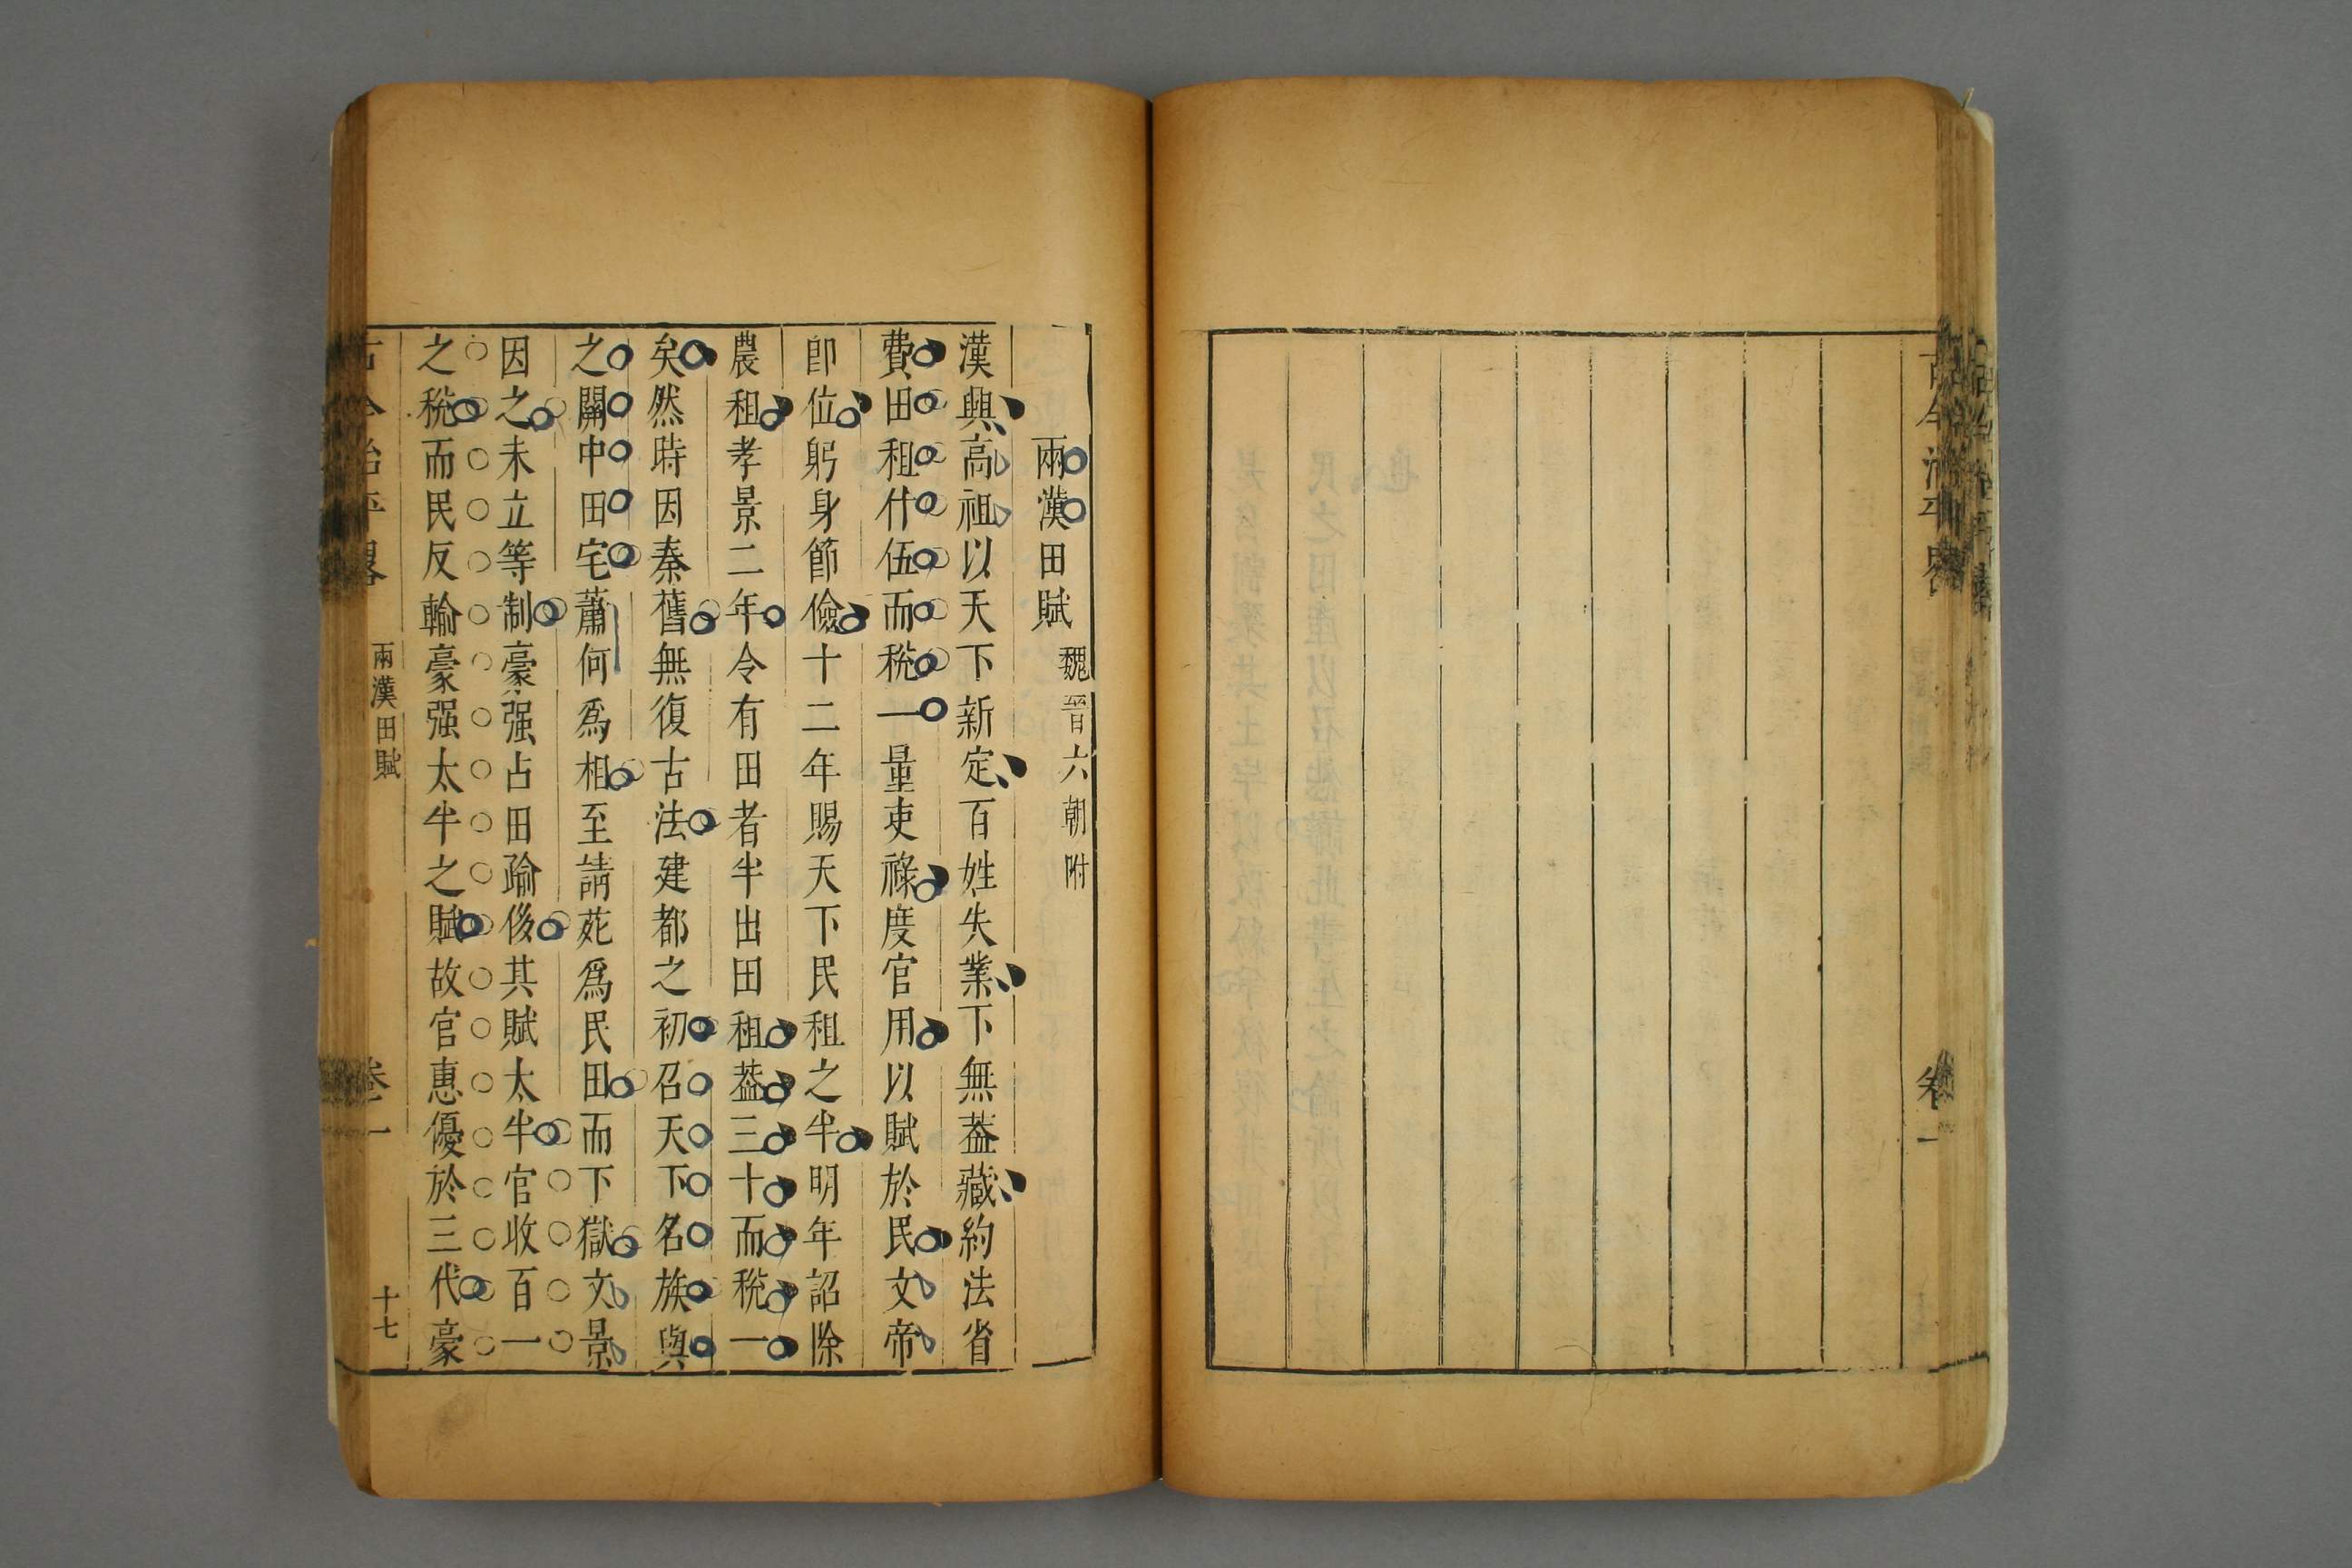 古今治平畧
卷一
兩漢田賦 魏晋六朝附
漢興高祖以天下新定百姓失業下無葢藏約法省
費田租什伍而稅一量吏祿度官用以賦於民文帝
卽位躬身節儉十二年賜天下民租之半明年詔除
農租孝景二年令有田者半出田租葢三十而稅一
矣然時因秦舊無復古法建都之初召天下名族與
之關中田宅蕭何爲相至請苑爲民田而下獄文景
因之未立等制豪强占田踰侈其賦太半官收百一
之稅而民反輸豪强太半之賦故官惠優於三代豪
古今治平畧
兩漢田賦
卷一
十七